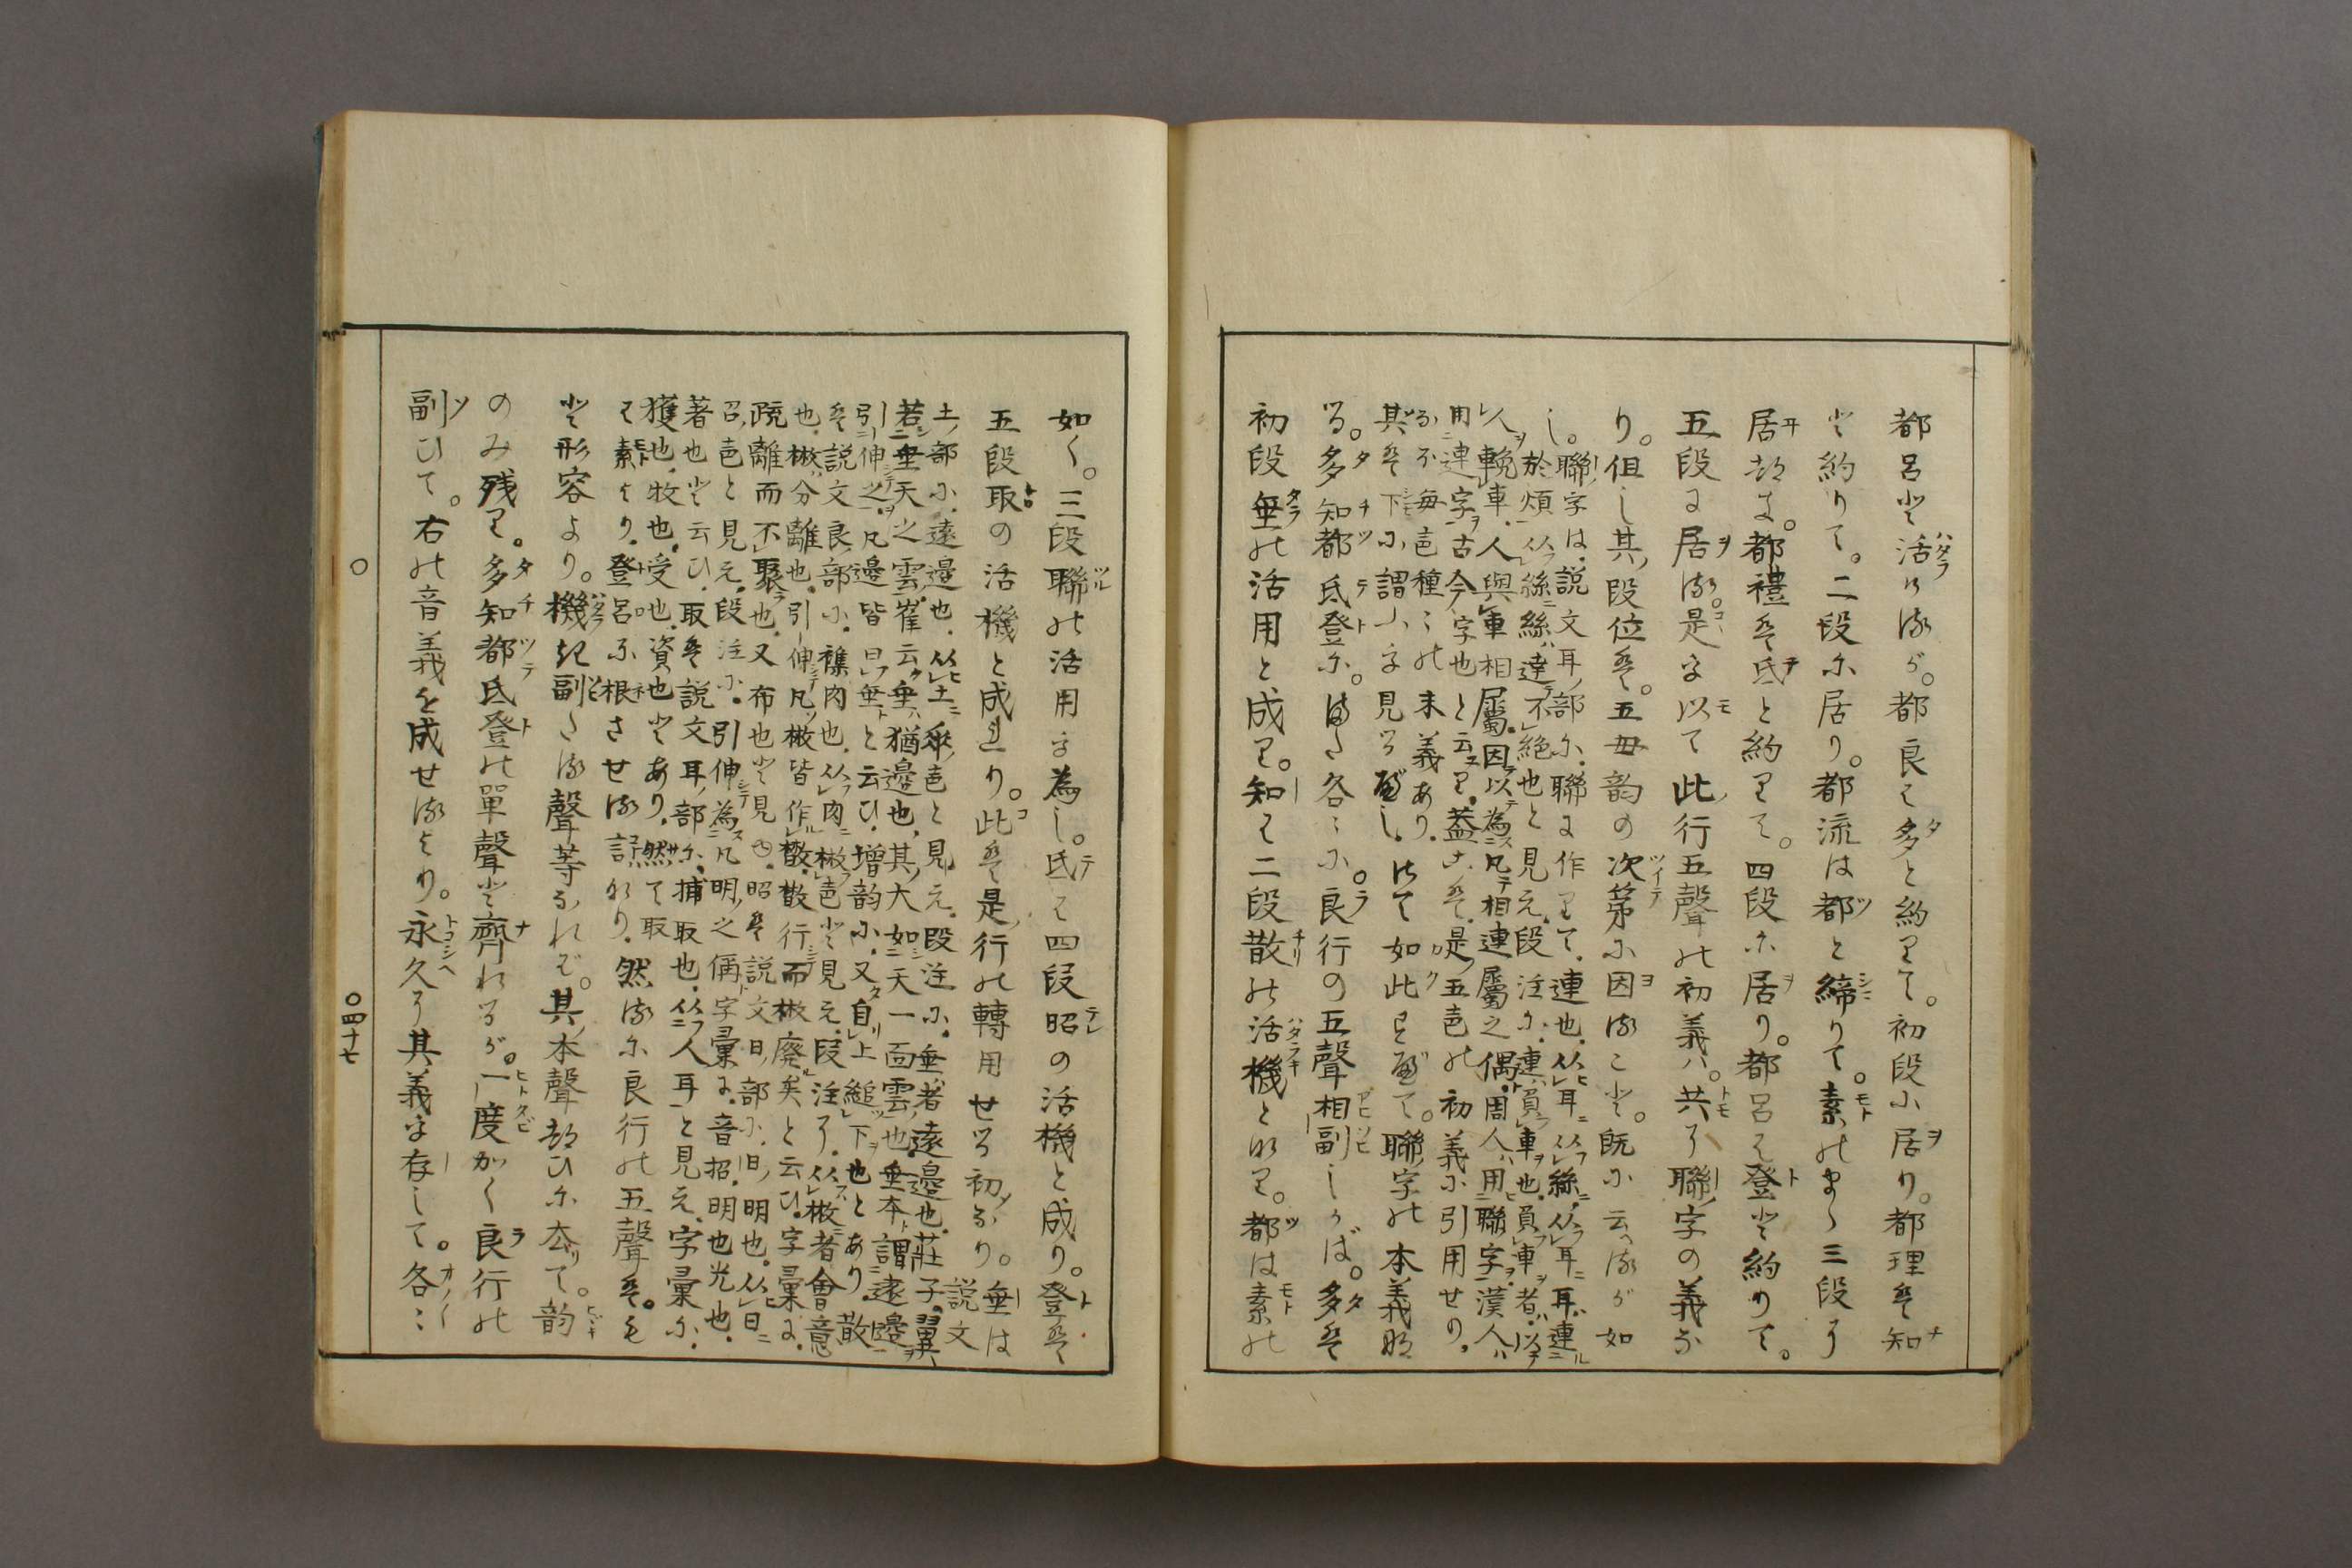 都呂と活けるが。都良は多と約りて。初段に居り。都理は知
と約りて。二段に居り。都流は都と締りて。素のまゝ三段に
居たるよ。都禮は氐と約りて。四段に居り。都呂は登と約りて。
五段に居る。是を以て此行五聲の初義ハ。共に聯字の義な
り。但し其段位は。五母韵の次第に因ること。既に云へるが如
し。聯字は。説文耳部に。聯に作りて。連也。从耳从絲。从耳耳連
於頰。从絲絲連不絶也と見え。段注に。連負車也。負車者。以
人輓車。人與車相屬。因以為凡相連屬之偁。周人用聯字。漢人
用連字。古今字也と云へり。蓋此は。是五音の初義に引用せり。
なほ毎音種々の末義あり。
其は下に謂ふを見るべし。
る。多知都氐登に。また各々に。良行の五聲相副しかば。多は
初段垂の活用と成り。知は二段散の活機となり。都は素の
如く。三段聯の活用を為し。氐は四段昭の活機と成り。登は
五段取の活機と成れり。此は是行の轉用せる初なり。垂は説文
土部に。遠邊也。从土𠂹音と見え。段注に。垂者遠邊也。莊子翼
若垂天之雲。崔云垂猶邊也。其大如天一面雲也。垂本謂遠邊
引伸之。凡邊皆曰垂と云ひ。増韵に。又自上縋下也とあり。散
は説文良部に。襍肉也。从肉㪔音と見え。段注に。从㪔者會意
也。㪔分離也。引伸凡㪔皆作散。散行而㪔廢矣と云ひ。字彙に。
疏離而不聚也。又布也と見ゆ。昭は説文日部に。日明也。从日
召音と見え。段注に。引伸為凡明之偁。字彙に。音招。明也光也。
著也と云ひ。取は説文耳部に。捕取也。从人耳と見え。字彙に。
獲也。收也。受也。資也とあり。然て取
は素より。登呂に根ざせる語なり。然るに良行の五聲は。も
と形容より。機き副たる聲等なれど。其本聲都ひに太りて。韵
のみ残り。多知都氐登の單聲と齊れるが。一度かく良行の
副ひて。右の音義を成せるより。永久に其義を存して。各々
○四十七